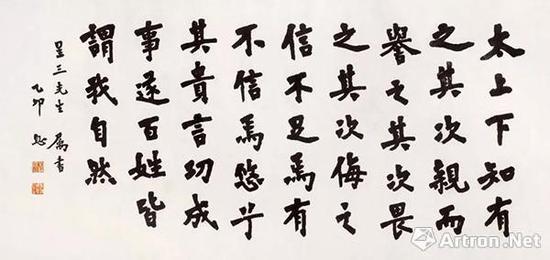 太上下知有
之其次親而
譽之其次畏
之其次侮之
信不足焉有
不信焉悠乎
其貴言功成
事遂百姓皆
謂我自然
呈三先生属書
乙卯
Artron.Net